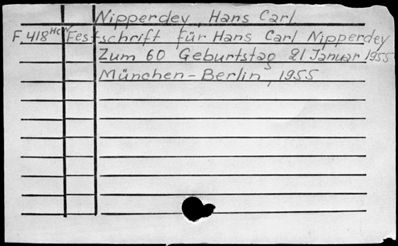 Nipperdey, Hans Carl
F.418 HCN Festschrift für Hans Carl Nipperdey
Zum 60 Geburtstag 21 Januar 1955
München-Berlin, 1955